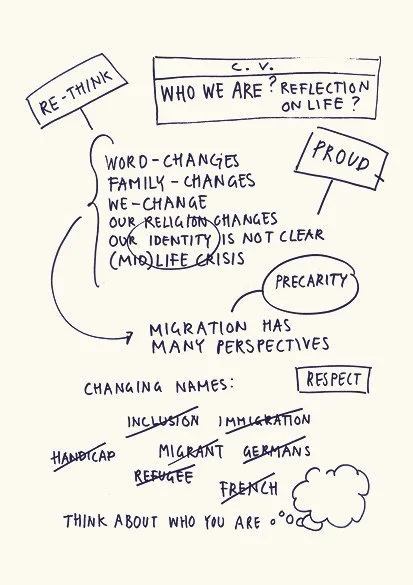 C. V.
RE-THINK
WHO WE ARE? REFLECTION
ON LIFE?
PROUD
WORD-CHANGES
FAMILY-CHANGES
WE-CHANGE
OUR RELIGION CHANGES
OUR IDENTITY IS NOT CLEAR
(MID)LIFE CRISIS
PRECARITY
MIGRATION HAS
MANY PERSPECTIVES
CHANGING NAMES:
RESPECT
INCLUSION IMMIGRATION
HANDICAP MIGRANT GERMANS
REFUGEE
FRENCH
THINK ABOUT WHO YOU ARE